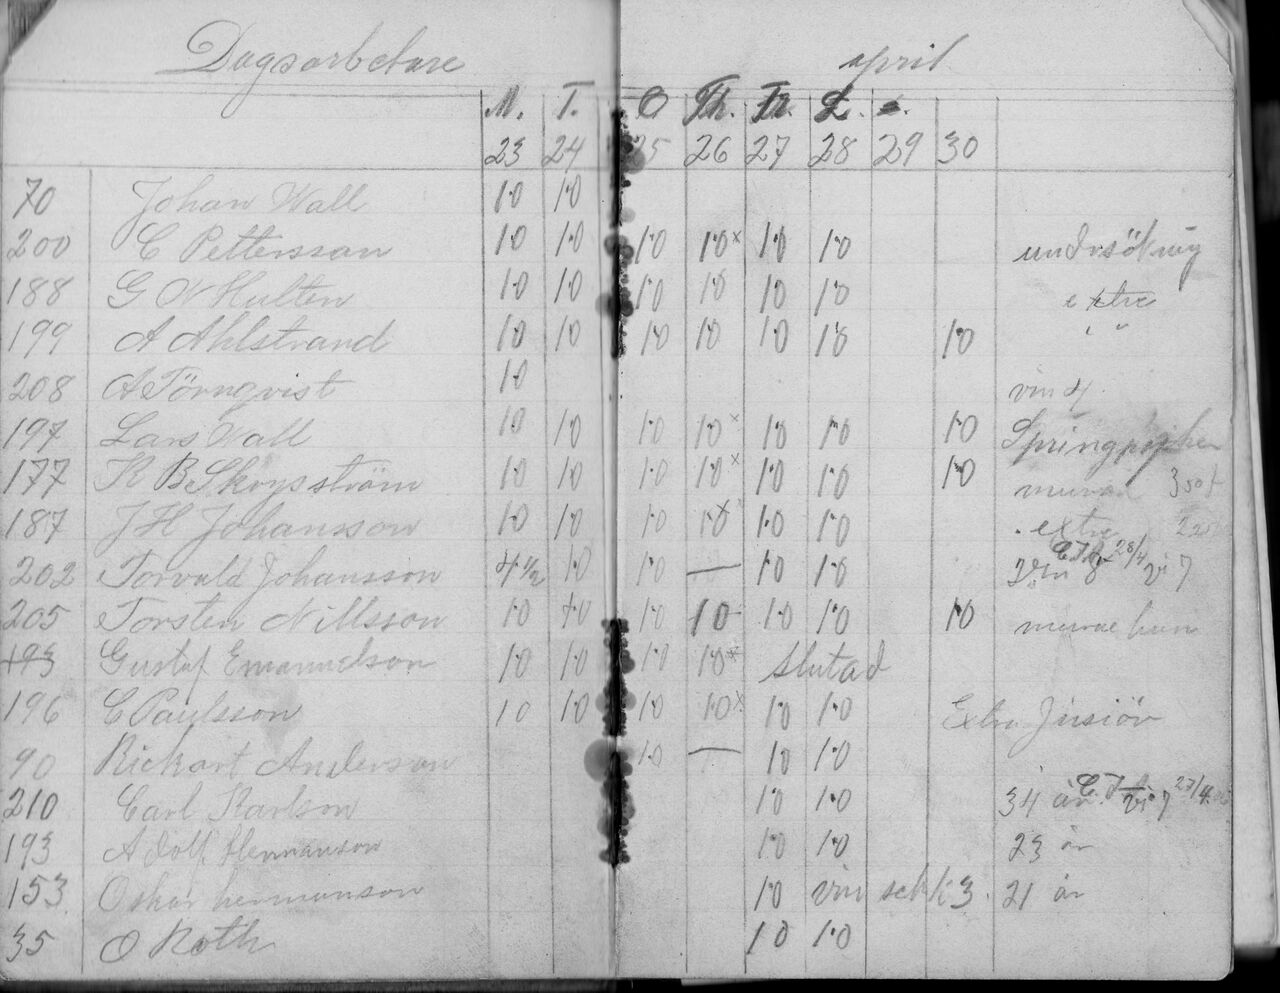 Dagsarbetare april
M. T. O Th. Fr. L. S.
23 24 25 26 27 28 29 30
70 Johan Wall 10 10
200 C Pettersson 10 10 10 10x 10 10 undersökning
188 G N Hulten 10 10 10 10 10 10 extre
199 A Ahlstrand 10 10 10 10 10 10 10 " "
208 A Törnqvist 10 vin 4
197 Lars Wall 10 10 10 10x 10 10 10
177 K B Skogsström 10 10 10 10x 10 10 10 murae
187 J H Johansson 10 10 10 10x 10 10 extre
202 Torvald Johansson 4 1/2 10 10 — 10 10 28/4
205 Torsten Nillsson 10 10 10 10 10 10 10 murae
193 Gustaf Emanuelson 10 10 10 10x slutad
196 C Paulsson 10 10 10 10x 10 10 Extra
90 Rickart Anderson 10 — 10 10
210 Carl Karlson 10 10 34 år
193 Adolf Hermanson 10 10 23 år
153 Oskar hermanson 10 vin 3. 21 år
35 O Roth 10 10